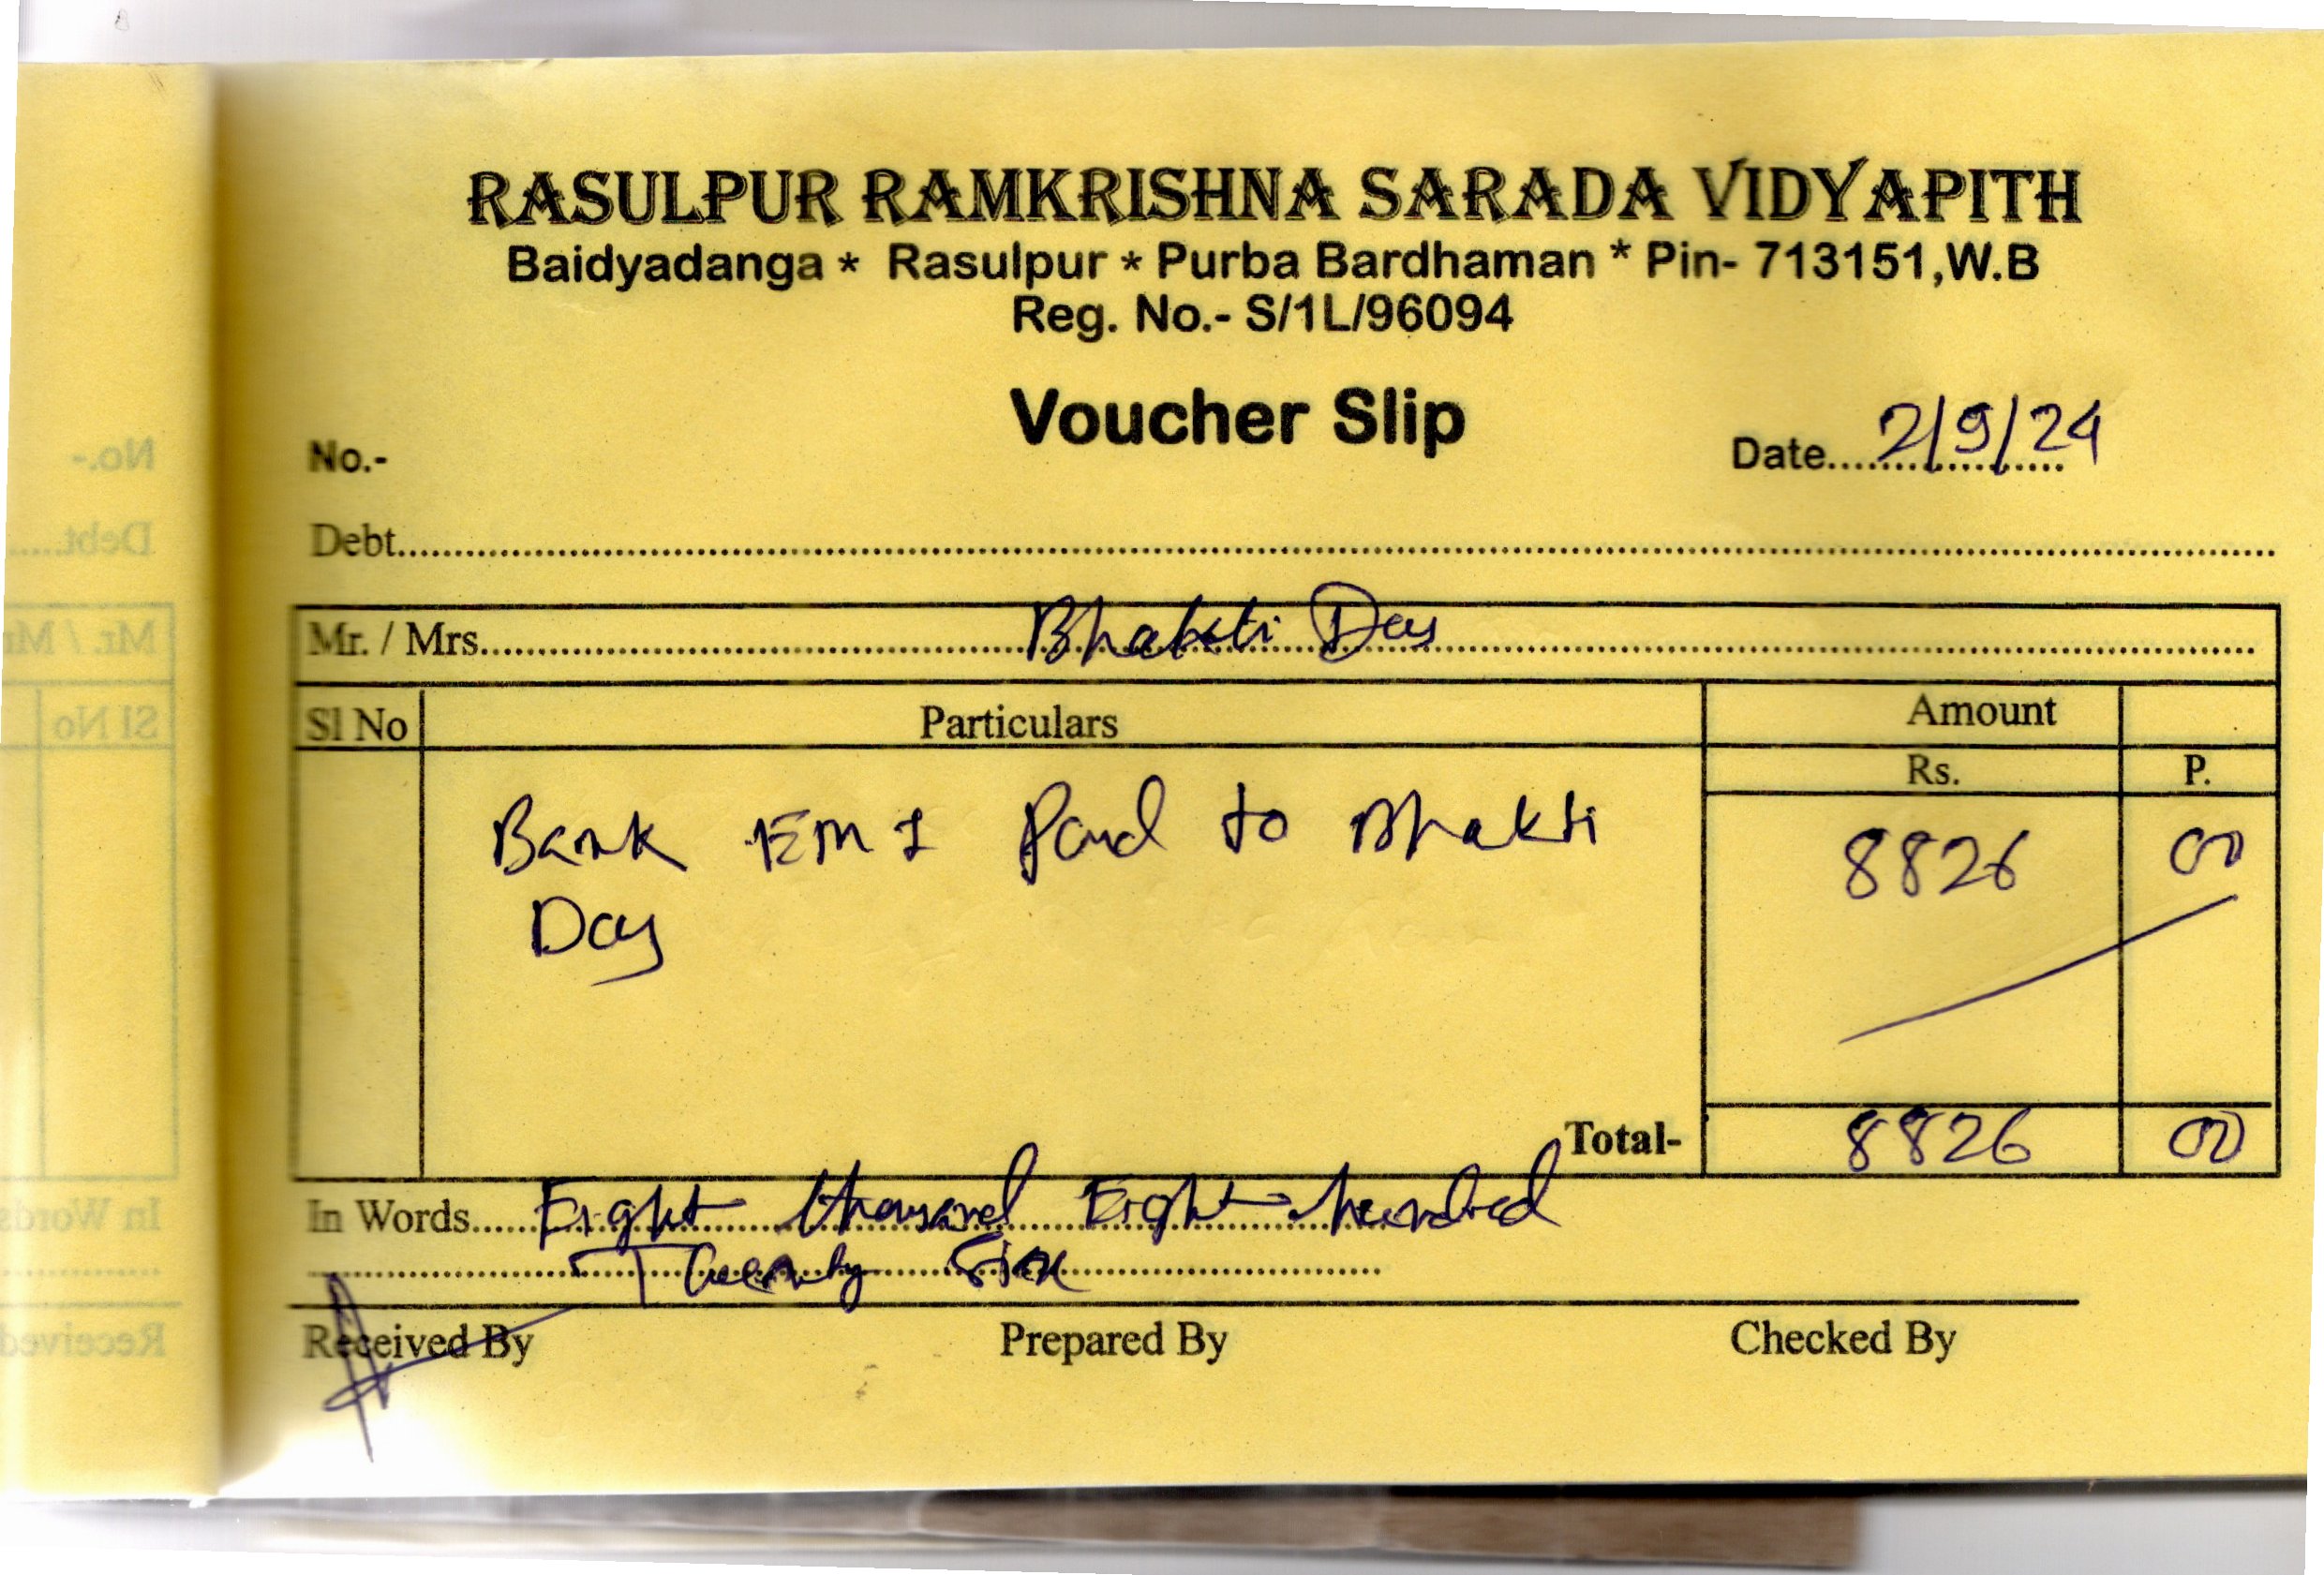 RASULPUR RAMKRISHNA SARADA VIDYAPITH
Baidyadanga * Rasulpur * Purba Bardhaman * Pin- 713151,W.B
Reg. No.- S/1L/96094
Voucher Slip
No.- Date. 2/9/24
Debt
Mr. / Mrs. Bhakti Das
Sl No Particulars Amount
Rs. P.
Bank EMI Paid to Bhakti 8826 00
Das
Total- 8826 00
In Words Eight thousand Eight hundred
Twenty Six
Received By Prepared By Checked By
No.-
Debt
Mr. / M
Sl No
In Words
Received